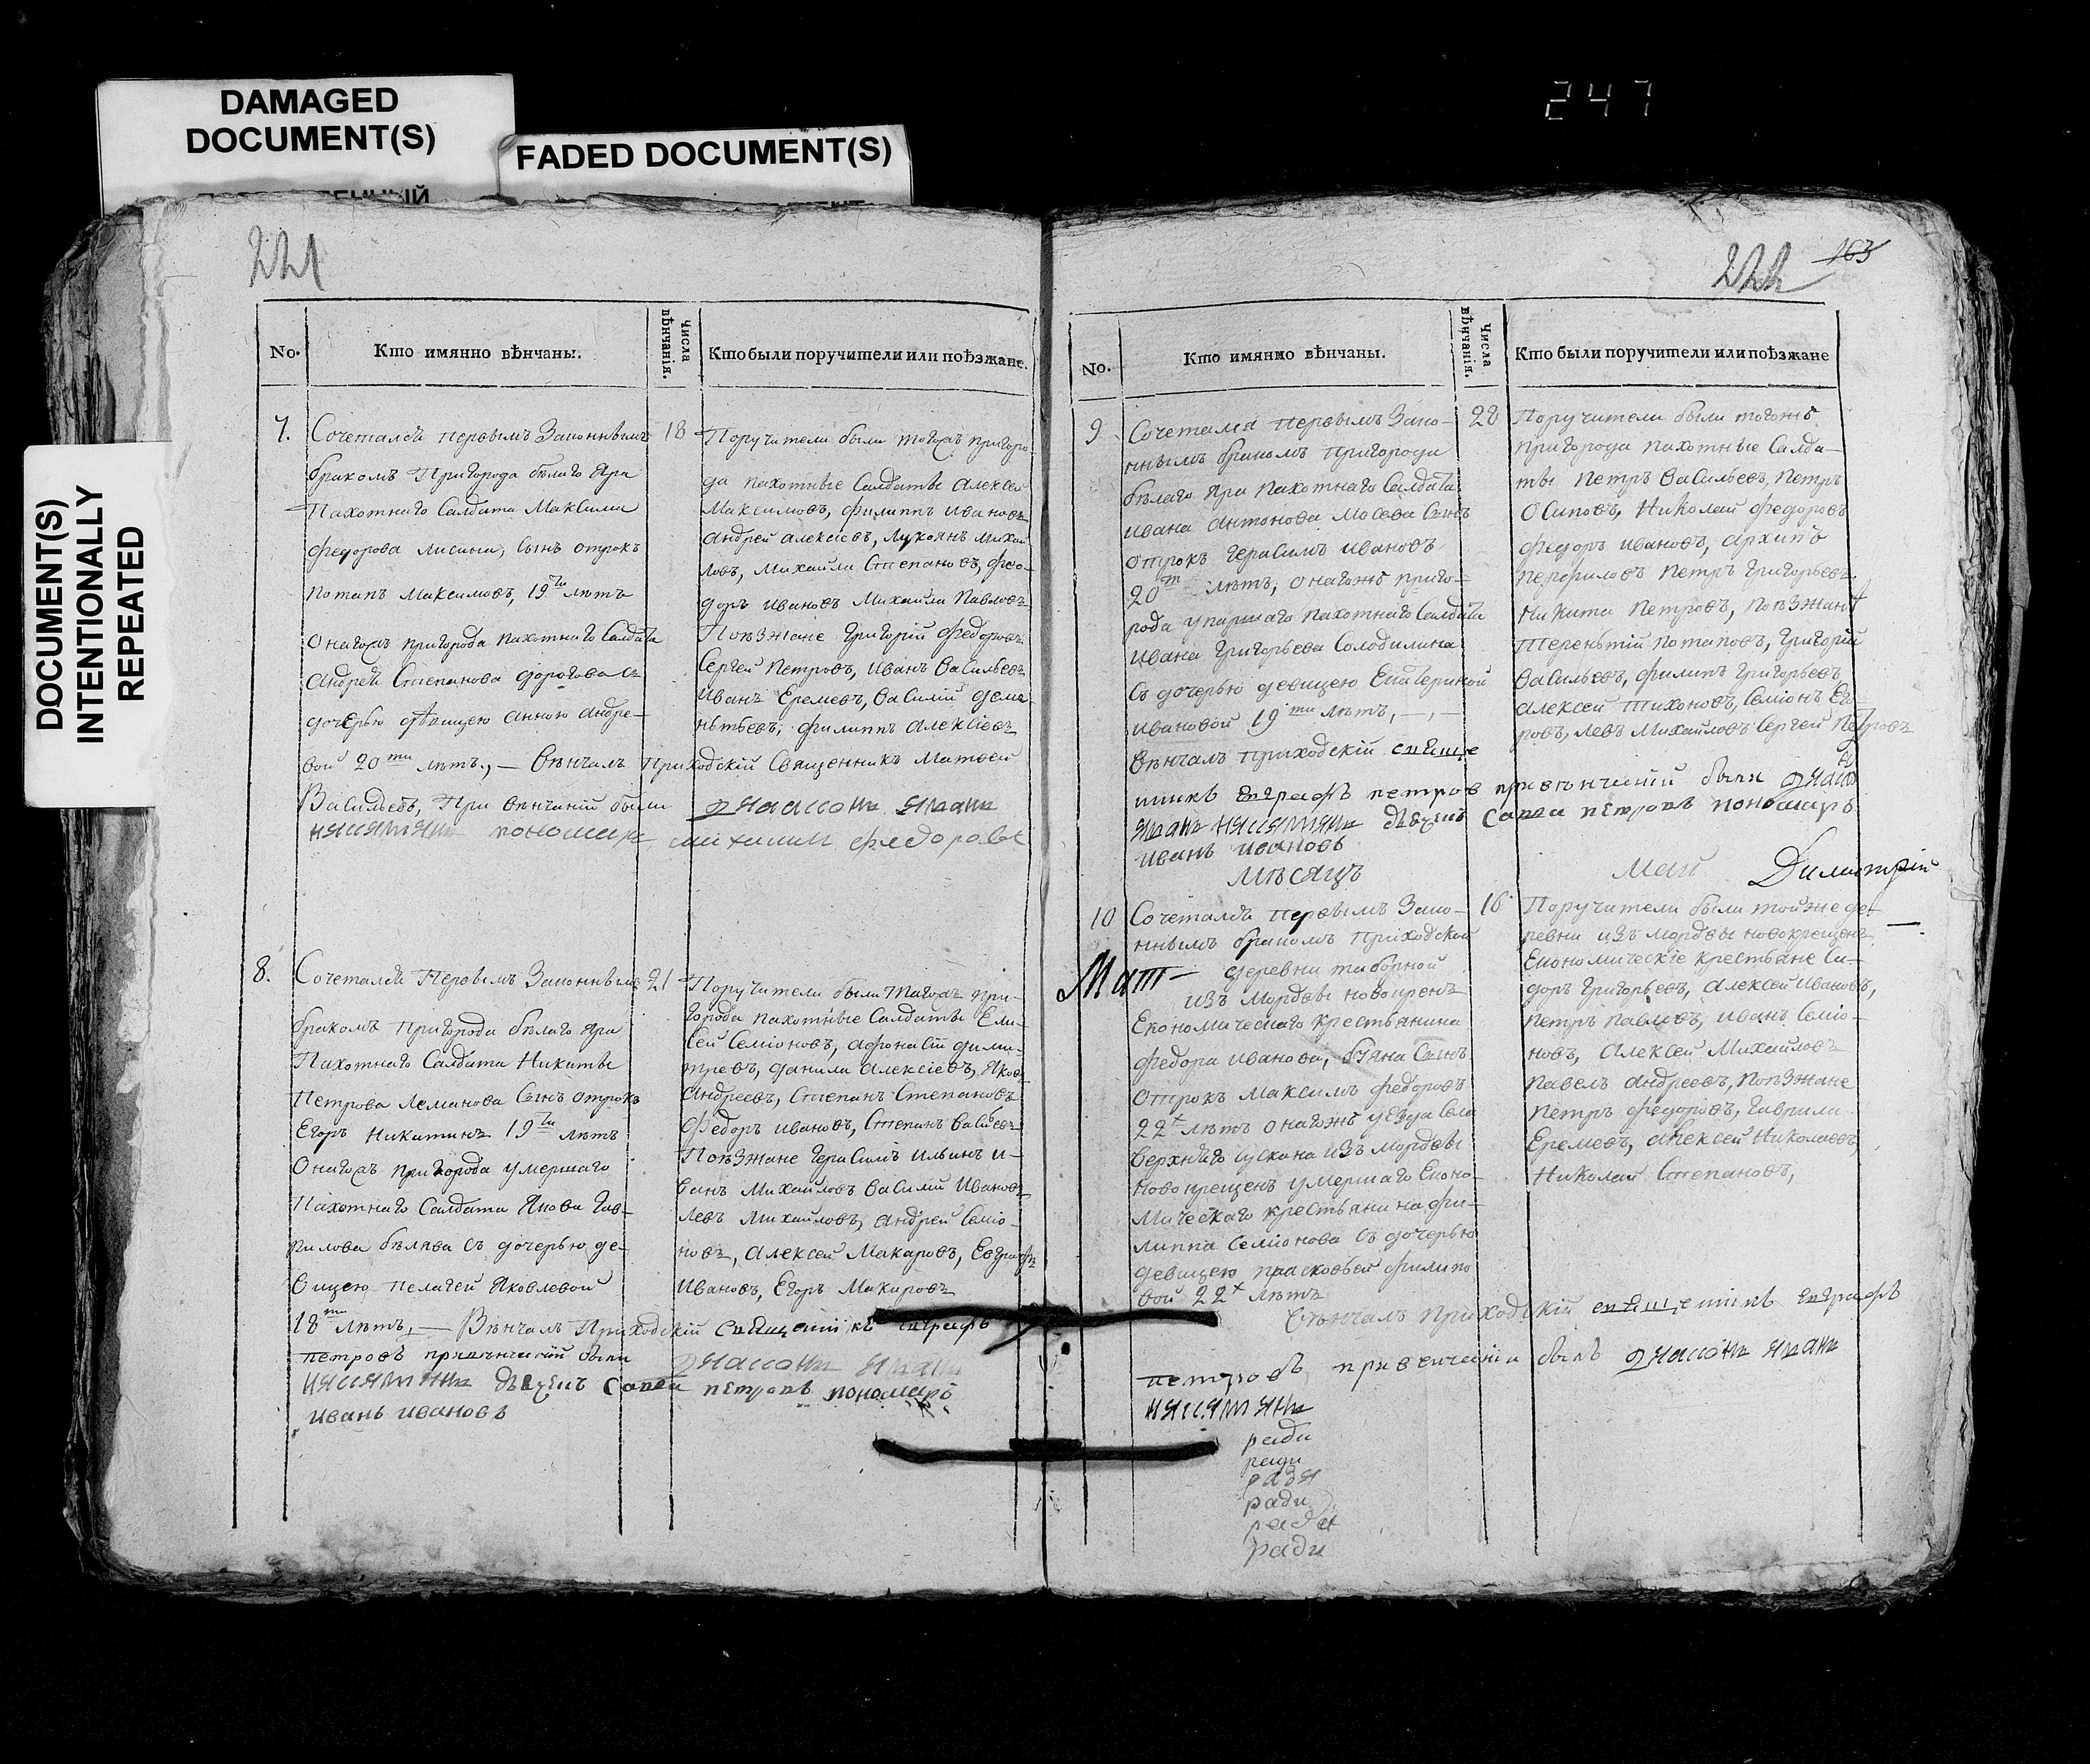 DAMAGED
DOCUMENT(S)
FADED DOCUMENT(S)
247
DOCUMENT(S)
INTENTIONALLY
REPEATED
221
No.
Кто имянно вѣнчаны.
Числа вѣнчанія.
Кто были поручители или поѣзжане.
7.
Сочетался первымъ законнымъ
бракомъ Пригорода бѣлаго Яра
Пахотнаго Салдата Максима
Федорова Лисина, сынъ отрокъ
Потапъ Максимовъ, 19ти лѣтъ
Онагожъ пригорода пахотнаго Салдата
Андрея Степанова дорогова съ
дочерью дѣвицею Анною Андре-
вой 20ти лѣтъ, — Вѣнчалъ Приходскій Священникъ Матвей
Васильевъ, При вѣнчаніи были
пономарь
18
Поручители были тогожъ пригоро
да пахотные Салдаты Алексей
Максимовъ, Филиппъ Ивановъ
Андрей Алексѣевъ, Лукоянъ Михаи
ловъ, Михайла Степановъ, Фео-
доръ Ивановъ Михайла Павловъ
Поѣзжане Григорій Федоровъ
Сергей Петровъ, Иванъ Васильевъ
Иванъ Еремеевъ, Василий Деме
нтьевъ, Филиппъ Алексіевъ
8.
Сочетался Первымъ Законнымъ
бракомъ пригорода бѣлаго Яра
Пахотнаго Салдата Никиты
Петрова Леманова Сынъ отрокъ
Егоръ Никитинъ 19ти лѣтъ
Онагожъ пригорода умершаго
Пахотнаго Салдата Якова Гав-
рилова бѣлява съ дочерью де-
вицею Пелагей Яковлевой
18ти лѣтъ, — Вѣнчалъ Приходскій священникъ Евграфъ
Петровъ при вѣнчаніи были
Савва Петровъ пономарь
Иванъ Ивановъ
21
Поручители были тагожъ при-
города пахотные Салдаты Ели-
сей Семіоновъ, Афонасій Дими-
тревъ, Данила Алексіевъ, Яковъ
Андреевъ, Степанъ Степановъ
Федоръ Ивановъ, Степанъ
Поѣзжане Герасимъ Ильинъ И-
ванъ Михайловъ Василій Ивановъ
Левъ Михайловъ, Андрей Семіо-
новъ, Алексей Макаровъ, Евграфъ
Ивановъ, Егоръ Макаровъ
222
163
No.
Кто имянно вѣнчаны.
Числа вѣнчанія.
Кто были поручители или поѣзжане
9
Сочетался Первымъ Зако-
ннымъ бракомъ пригорода
бѣлаго Яра Пахотнаго Салдата
Ивана Антонова Сынъ
отрокъ Герасимъ Ивановъ
20ти лѣтъ, онагожъ приго-
рода умершаго пахотнаго Салдата
Ивана Григорьева Солодилина
Съ дочерью девицею Екатериной
Ивановой 19ти лѣтъ, —
Вѣнчалъ приходскій священ
никъ Евграфъ Петровъ при вѣнчаніи были
Савва Петровъ пономарь
Иванъ Ивановъ
28
Поручители были тогожъ
пригорода пахотные Салда-
ты Петръ Васильевъ, Петръ
Осиповъ, Николай Федоровъ
Федоръ Ивановъ, Архипъ
Перфиловъ Петръ Григорьевъ
Никита Петровъ, Поѣзжане
Терентій Потаповъ, Григорій
Васильевъ, Филипъ Григорьевъ
Алексей Тихоновъ, Семіонъ Его
ровъ, Левъ Михайловъ Сергей Петровъ
Мѣсяцъ
Май
Димитрій
10
Сочетался Первымъ Зако-
ннымъ бракомъ Приходской
Мат-
деревни таборной
изъ Мордвы новокрещенъ
Економическаго крестьянина
Федора Иванова, Сынъ
отрокъ Максимъ Федоровъ
22х лѣтъ онагожъ уезда Села
Верхняго изъ мордвы
новокрещенъ умершаго Еконо-
мическаго крестьянина Фи-
липпа Семіонова Съ дочерью
девицею Прасковьей Филипо
вой 22х лѣтъ
Вѣнчалъ Приходскій священникъ Евграфъ
Петровъ, при венчаніи былъ
16
Поручители были той же де-
ревни изъ мордвы новокрещенъ
Економическіе крестьяне Си-
доръ Григорьевъ, Алексей Ивановъ,
Петръ Павловъ, Иванъ Семіо-
новъ, Алексей Михайловъ
Павелъ Андреевъ, поѣзжане
Петръ Федоровъ, Гаврила
Еремеевъ, Алексей Николаевъ,
Николай Степановъ,
ради
ради
ради
ради
ради
ради